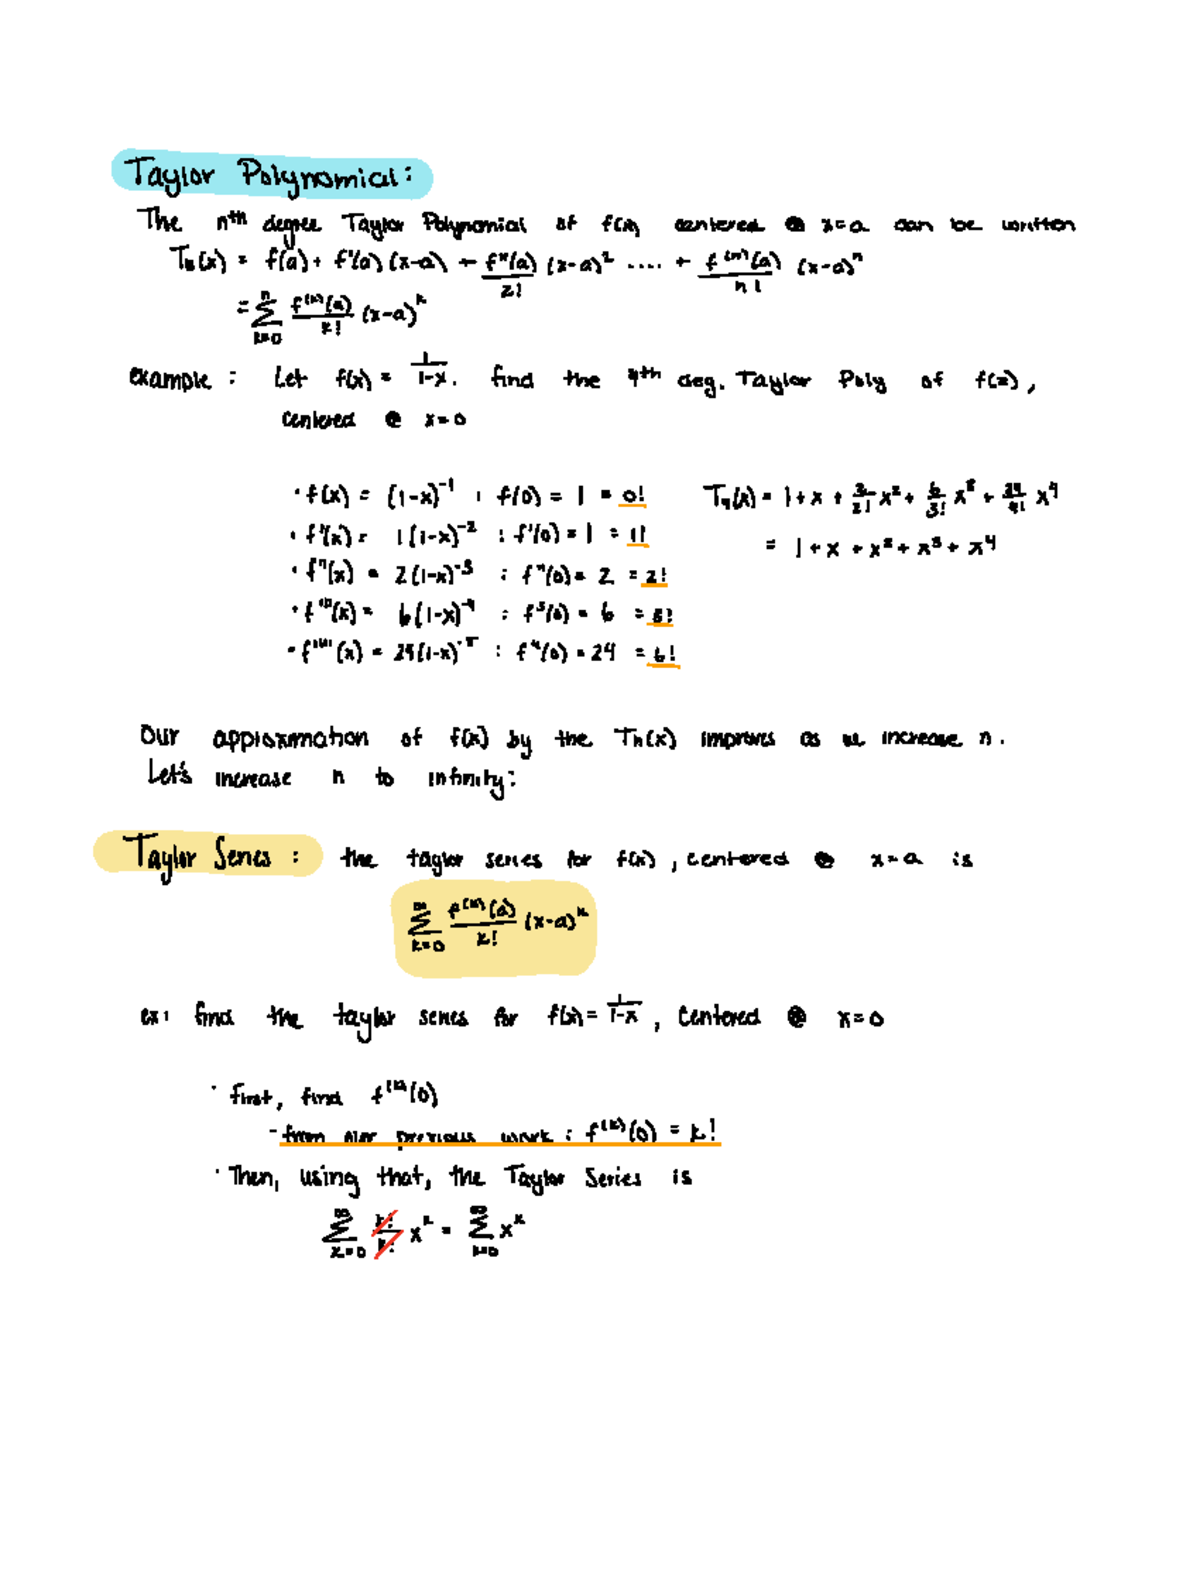 Taylor Polynomial:
The nth degree Taylor Polynomial of f(x) centered @ x=a can be written
Tn(x) = f(a) + f'(a)(x-a) + f"(a)/2! (x-a)² .... + f⁽ⁿ⁾(a)/n! (x-a)ⁿ
= Σ_{k=0}^{n} f⁽ᵏ⁾(a)/k! (x-a)ᵏ
example: Let f(x) = 1/1-x. find the 4th deg. Taylor Poly of f(x),
centered @ x=0
· f(x) = (1-x)⁻¹ : f(0) = 1 = 0! T₄(x) = 1+x+ 2/2! x² + 6/3! x³ + 24/4! x⁴
· f'(x) = 1(1-x)⁻² : f'(0) = 1 = 1! = 1+x+x²+x³+x⁴
· f"(x) = 2(1-x)⁻³ : f"(0) = 2 = 2!
· f'''(x) = 6(1-x)⁻⁴ : f³(0) = 6 = 5!
· f''''(x) = 24(1-x)⁻⁵ : f⁴(0) = 24 = 6!
Our approximation of f(x) by the Tn(x) improves as we increase n.
Let's increase n to infinity:
Taylor Series: the taylor series for f(x), centered @ x=a is
Σ_{k=0}^{∞} f⁽ᵏ⁾(a)/k! (x-a)ᵏ
ex: find the taylor series for f(x) = 1/1-x, centered @ x=0
· first, find f⁽ᵏ⁾(0)
- from our previous work : f⁽ᵏ⁾(0) = k!
· Then, using that, the Taylor Series is
Σ_{k=0}^{∞} k!/k! xᵏ = Σ_{k=0}^{∞} xᵏ